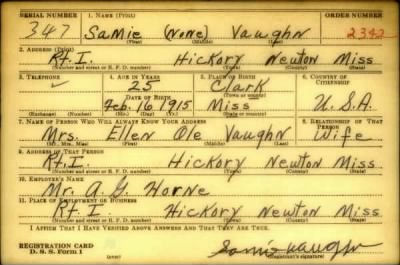 SERIAL NUMBER 1. NAME (Print) ORDER NUMBER
347 Samie (None) Vaughn 2342
(First) (Middle) (Last)
2. ADDRESS (Print)
Rt. I. Hickory Newton Miss
(Number and street or R. F. D. number) (Town) (County) (State)
3. TELEPHONE 4. AGE IN YEARS 5. PLACE OF BIRTH 6. COUNTRY OF CITIZENSHIP
✓ 25 Clark
DATE OF BIRTH (Town or county)
Feb. 16 1915 Miss U.S.A.
(Exchange) (Number) (Mo.) (Day) (Yr.) (State or country)
7. NAME OF PERSON WHO WILL ALWAYS KNOW YOUR ADDRESS 8. RELATIONSHIP OF THAT PERSON
Mrs. Ellen Ole Vaughn Wife
(Mr., Mrs., Miss) (First) (Middle) (Last)
9. ADDRESS OF THAT PERSON
Rt. I. Hickory Newton Miss
(Number and street or R. F. D. number) (Town) (County) (State)
10. EMPLOYER'S NAME
Mr. A. G. Horne
11. PLACE OF EMPLOYMENT OR BUSINESS
Rt. I Hickory Newton Miss
(Number and street or R. F. D. number) (Town) (County) (State)
I AFFIRM THAT I HAVE VERIFIED ABOVE ANSWERS AND THAT THEY ARE TRUE.
REGISTRATION CARD
D. S. S. Form 1 (Registrant's signature)
Samie Vaughn